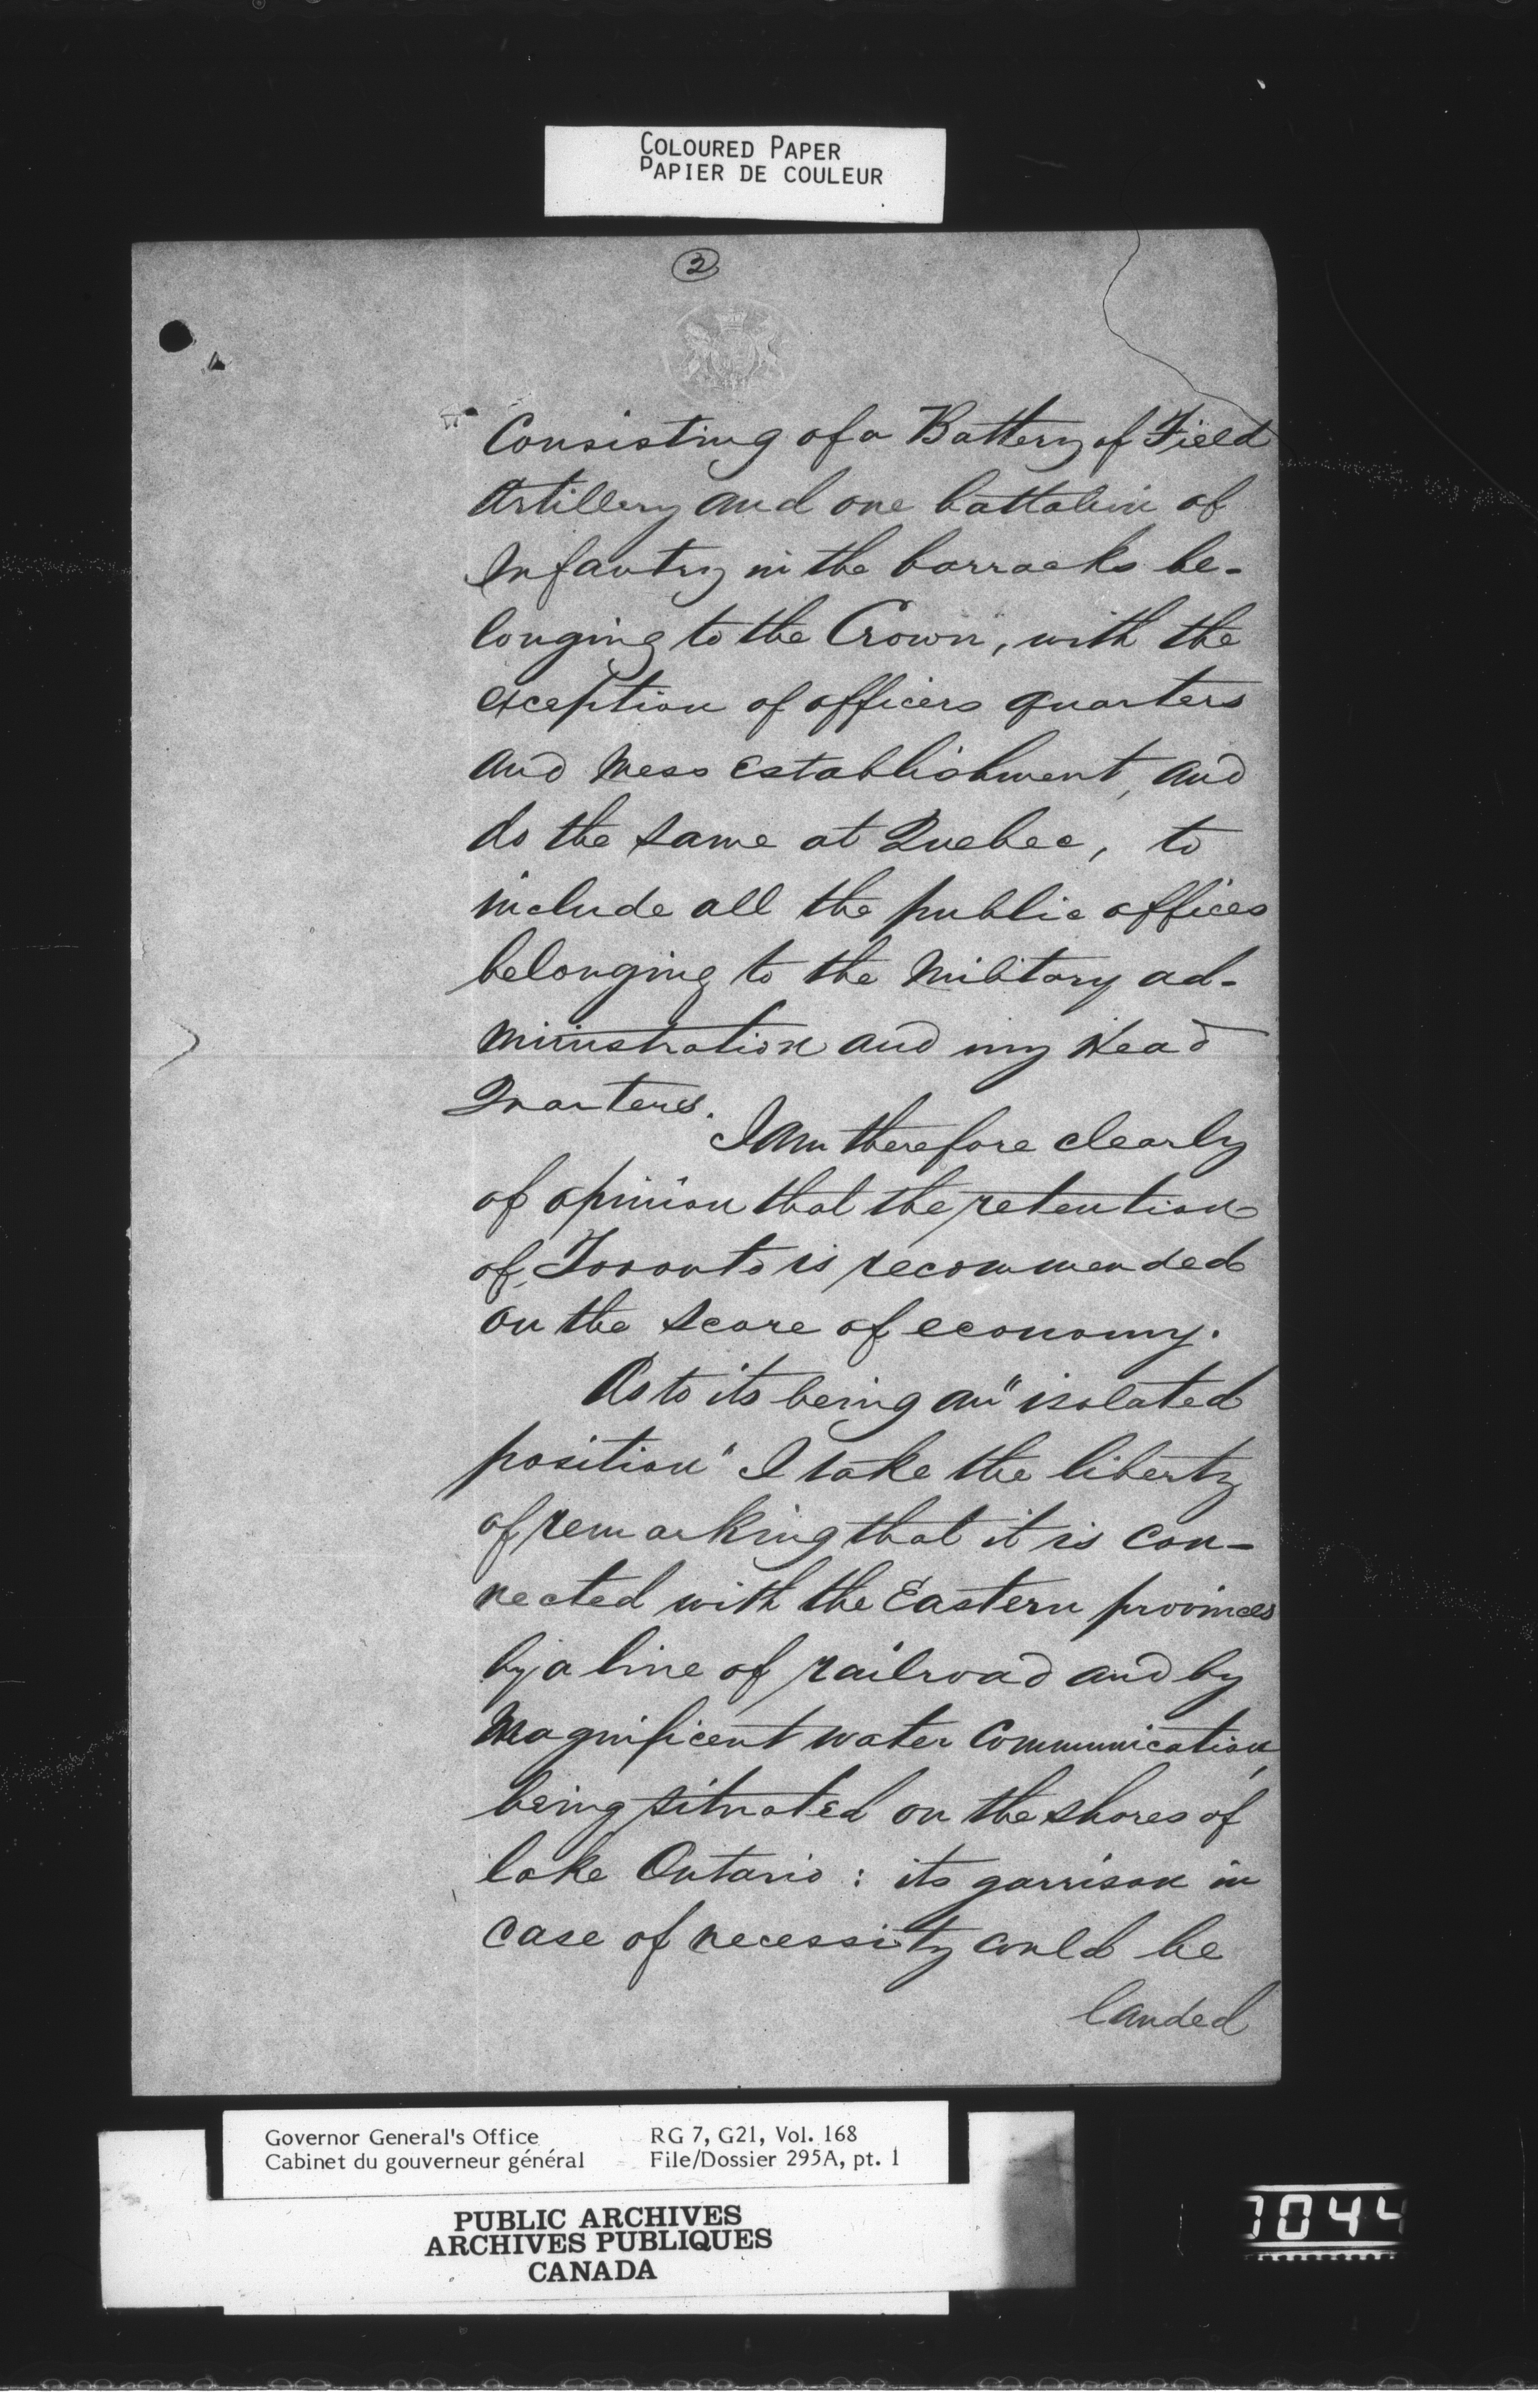 COLOURED PAPER
PAPIER DE COULEUR
2
Consisting of a Battery of Field
Artillery and one battalion of
Infantry in the barracks be-
longing to the Crown, with the
exception of officers quarters
and mess establishment, and
do the same at Quebec, to
include all the public offices
belonging to the Military ad-
ministration and my Head
Quarters.
I am therefore clearly
of opinion that the retention
of Toronto is recommended
on the score of economy.
As to its being an "isolated
position" I take the liberty
of remarking that it is con-
nected with the Eastern provinces
by a line of railroad and by
magnificent water communication,
being situated on the shores of
lake Ontario : its garrison in
case of necessity could be
landed
Governor General's Office
Cabinet du gouverneur général
RG 7, G21, Vol. 168
File/Dossier 295A, pt. 1
PUBLIC ARCHIVES
ARCHIVES PUBLIQUES
CANADA
044